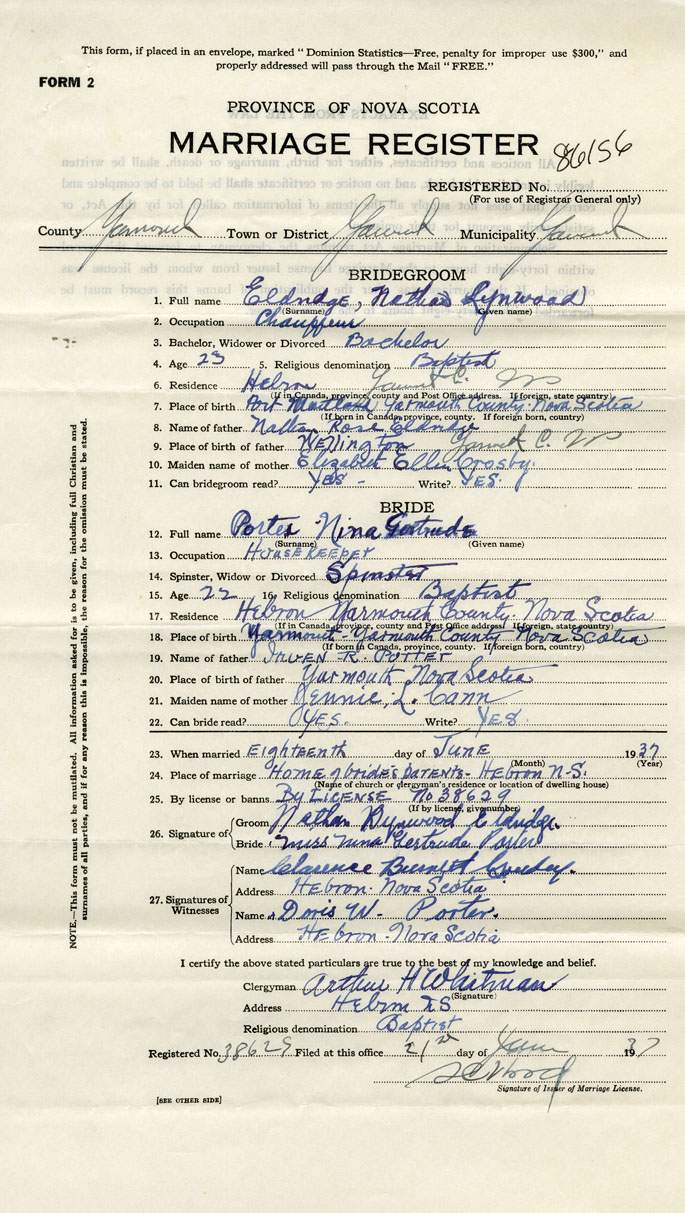 This form, if placed in an envelope, marked "Dominion Statistics—Free, penalty for improper use $300," and
properly addressed will pass through the Mail "FREE."
FORM 2
PROVINCE OF NOVA SCOTIA
MARRIAGE REGISTER 86156
REGISTERED No.
(For use of Registrar General only)
County Yarmouth Town or District Yarmouth Municipality Yarmouth
BRIDEGROOM
1. Full name Eldridge, Nathan Lynwood
(Surname) (Given name)
2. Occupation Chauffeur
3. Bachelor, Widower or Divorced Bachelor
4. Age 23 5. Religious denomination Baptist
6. Residence Hebron Yarmouth C. NS
(If in Canada, province, county and Post Office address. If foreign, state country)
7. Place of birth Port Maitland Yarmouth County Nova Scotia
(If born in Canada, province, county. If foreign born, country)
8. Name of father Nathan Rose Eldridge
9. Place of birth of father Wellington Yarmouth C. NS
10. Maiden name of mother Elizabeth Ellen Crosby
11. Can bridegroom read? Yes - Write? Yes.
BRIDE
12. Full name Porter Nina Gertrude
(Surname) (Given name)
13. Occupation Housekeeper
14. Spinster, Widow or Divorced Spinster
15. Age 22 16. Religious denomination Baptist
17. Residence Hebron Yarmouth County, Nova Scotia
(If in Canada, province, county and Post Office address. If foreign, state country)
18. Place of birth Yarmouth - Yarmouth County Nova Scotia
(If born in Canada, province, county. If foreign born, country)
19. Name of father R. Porter
20. Place of birth of father Yarmouth Nova Scotia
21. Maiden name of mother Jennie, L. Cann
22. Can bride read? Yes. Write? Yes
23. When married Eighteenth day of June 1937
(Month) (Year)
24. Place of marriage Home of bride's parents - Hebron N.S.
(Name of church or clergyman's residence or location of dwelling house)
25. By license or banns By License No 38629
(If by license, give number)
26. Signature of Groom Nathan Lynwood Eldridge
Bride Miss Nina Gertrude Porter
27. Signatures of Witnesses Name Clarence Burnett
Address Hebron. Nova Scotia
Name Doris W. Porter.
Address Hebron - Nova Scotia
I certify the above stated particulars are true to the best of my knowledge and belief.
Clergyman Arthur H Whitman
(Signature)
Address Hebron NS
Religious denomination Baptist
Registered No. 38629 Filed at this office 21st day of June 1937
Signature of Issuer of Marriage License.
[SEE OTHER SIDE]
NOTE.—This form must not be mutilated. All information asked for is to be given, including full Christian and
surnames of all parties, and if for any reason this is impossible, the reason for the omission must be stated.